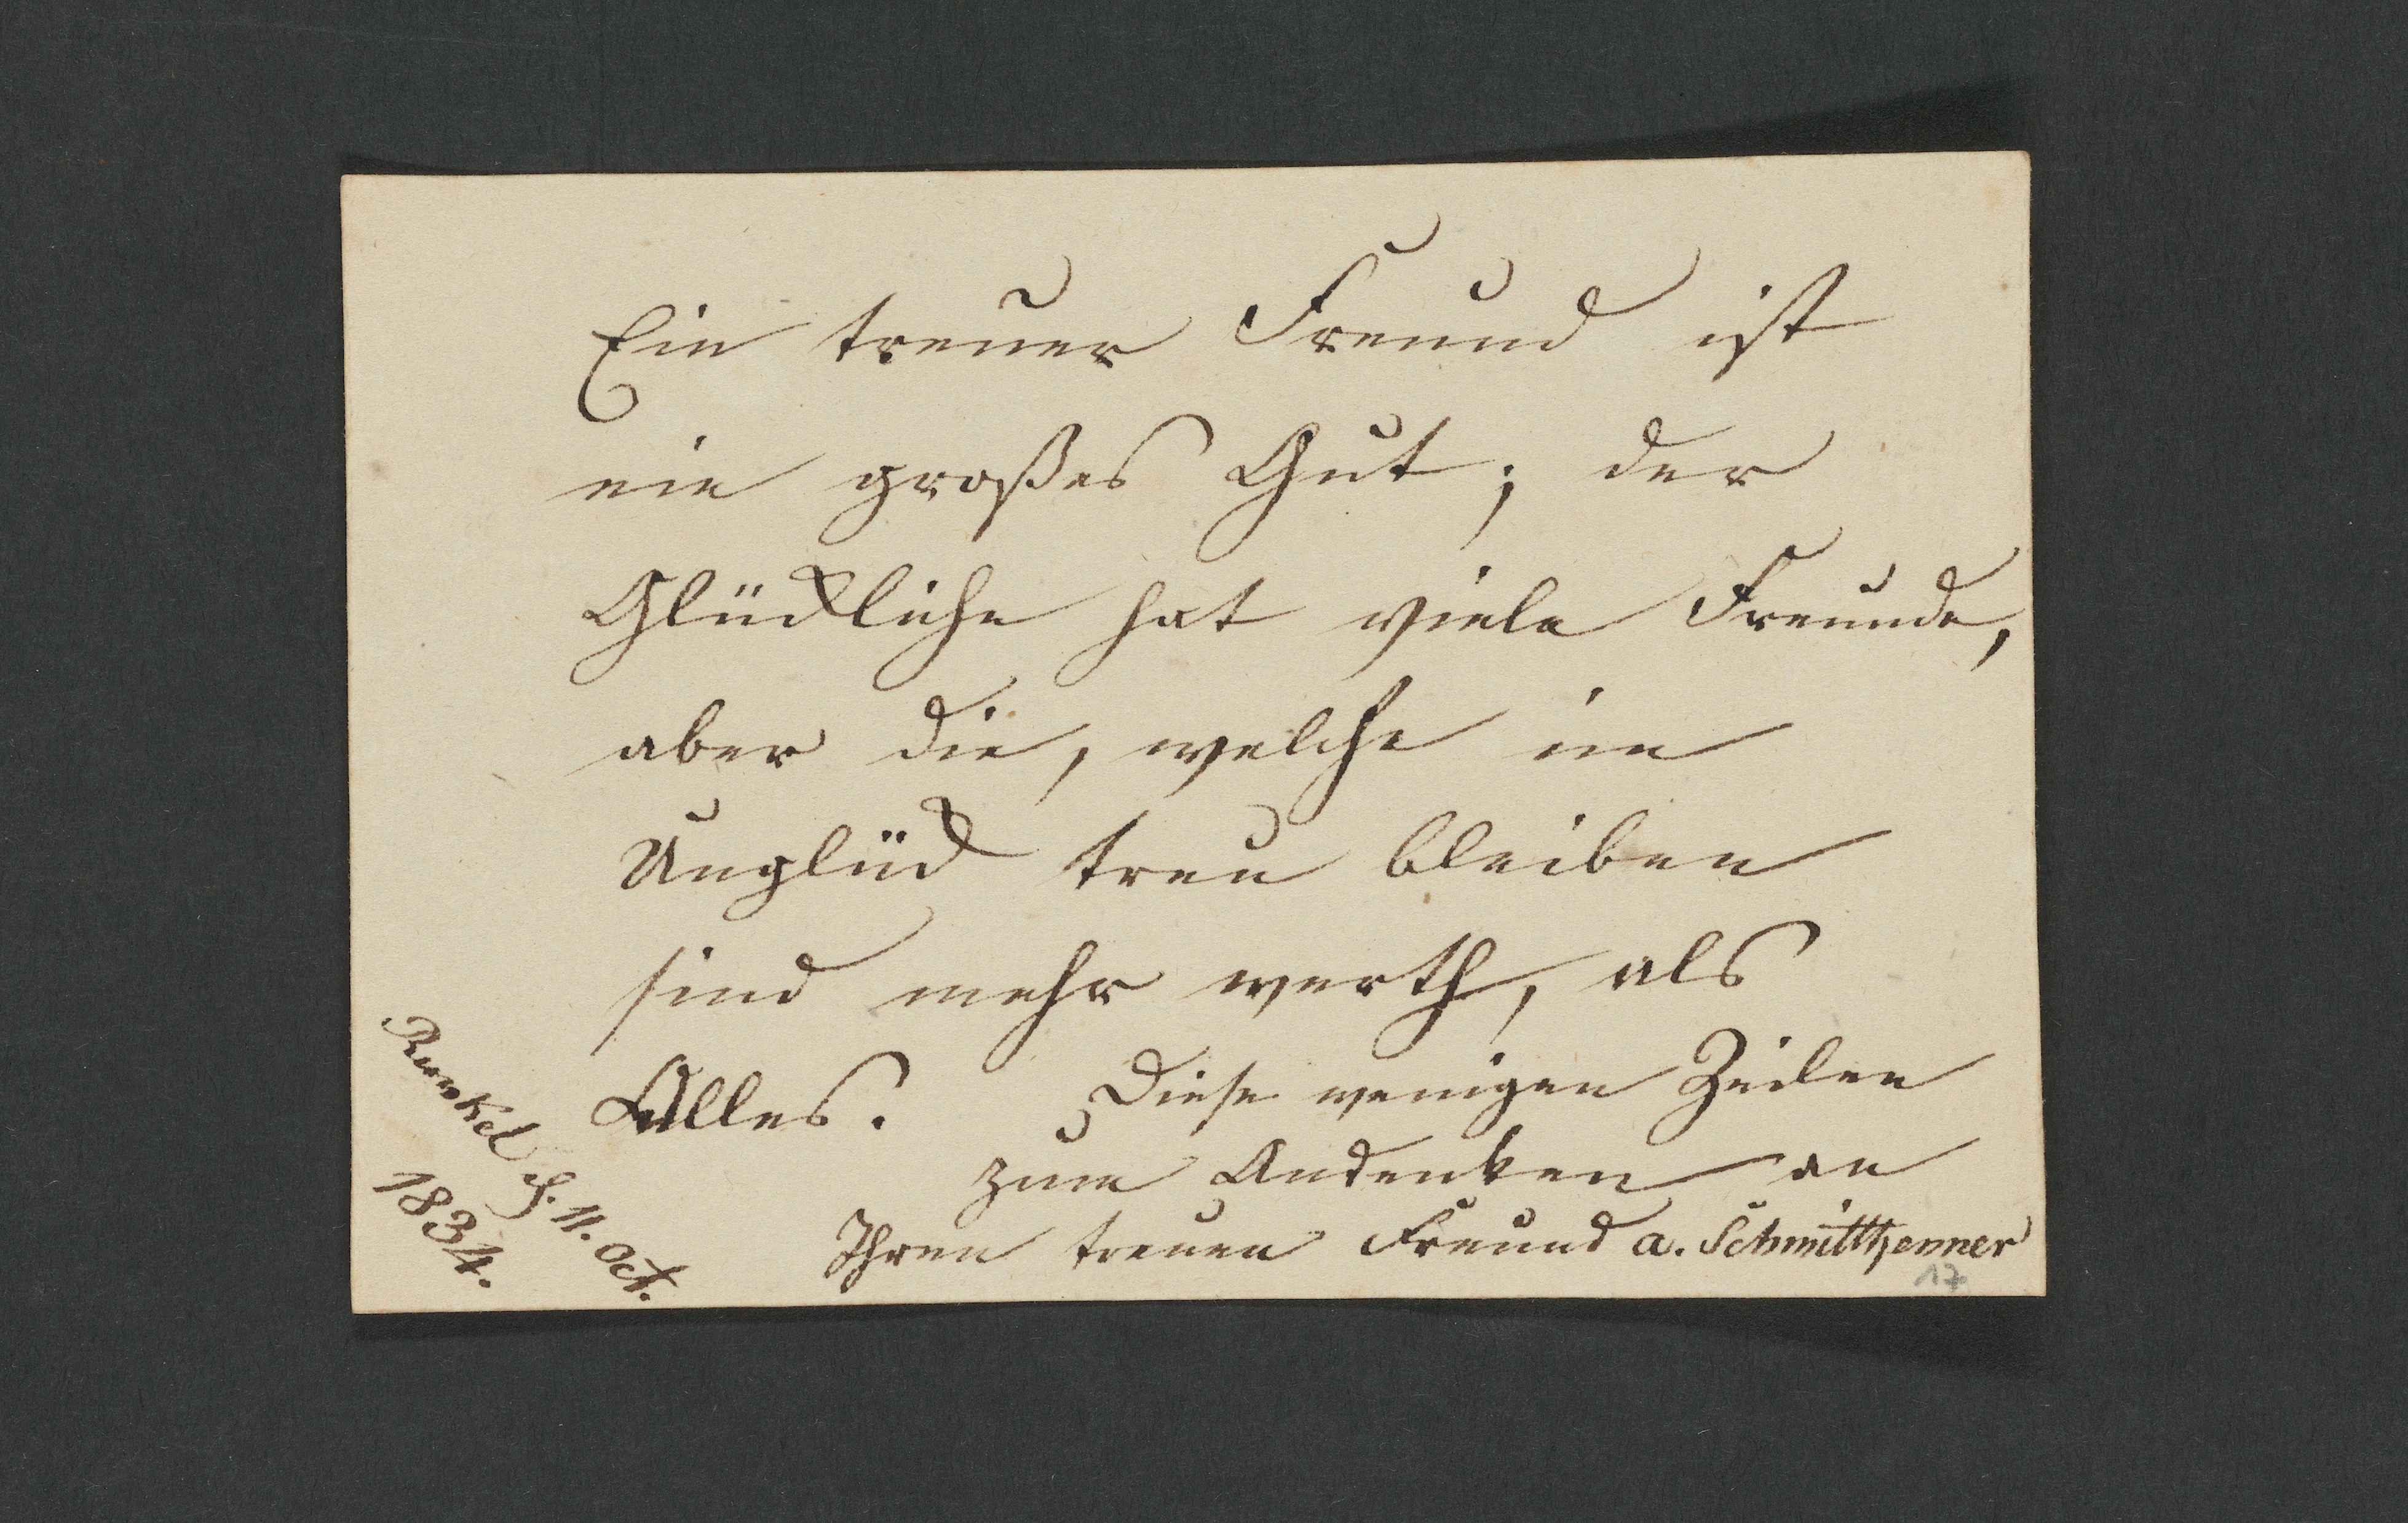 Ein treuer Freund ist
ein großes Gut; der
Glückliche hat viele Freunde,
aber die, welche im
Unglück treu bleiben
sind mehr werth, als
Alles.
Diese wenigen Zeilen
zum Andenken an
Ihren treuen Freund A. Schmitthenner
Runkel d. 11. Oct.
1834.
17